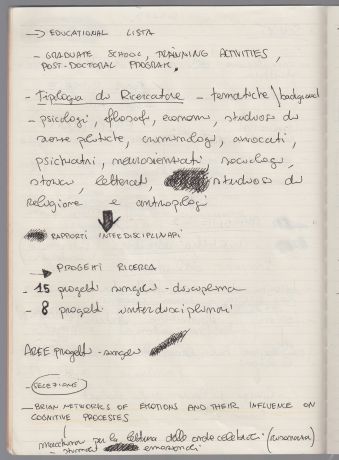 → EDUCATIONAL LISTA
- GRADUATE SCHOOL, TRAINNING ACTIVITIES,
POST-DOCTORAL PROGRAM.
- Tipologia di Ricercatore - tematiche \ background
- psicologi, filosofi, economi, studiosi di
scienze politiche, criminologi, avvocati,
psichiatri, neuroscienziati, sociologi,
storici, letterati, studiosi di
religione e antropologi
RAPPORTI INTERDISCIPLINARI
→ PROGETTI RICERCA
- 15 progetti singola-disciplina
- 8 progetti interdisciplinari
AREE progetti - singoli
- SELEZIONE
- BRIAN NETWORKS OF EMOTIONS AND THEIR INFLUENCE ON
COGNITIVE PROCESSES
macchina per la lettura delle onde celebrali (risonanza)
- stimoli emozionali